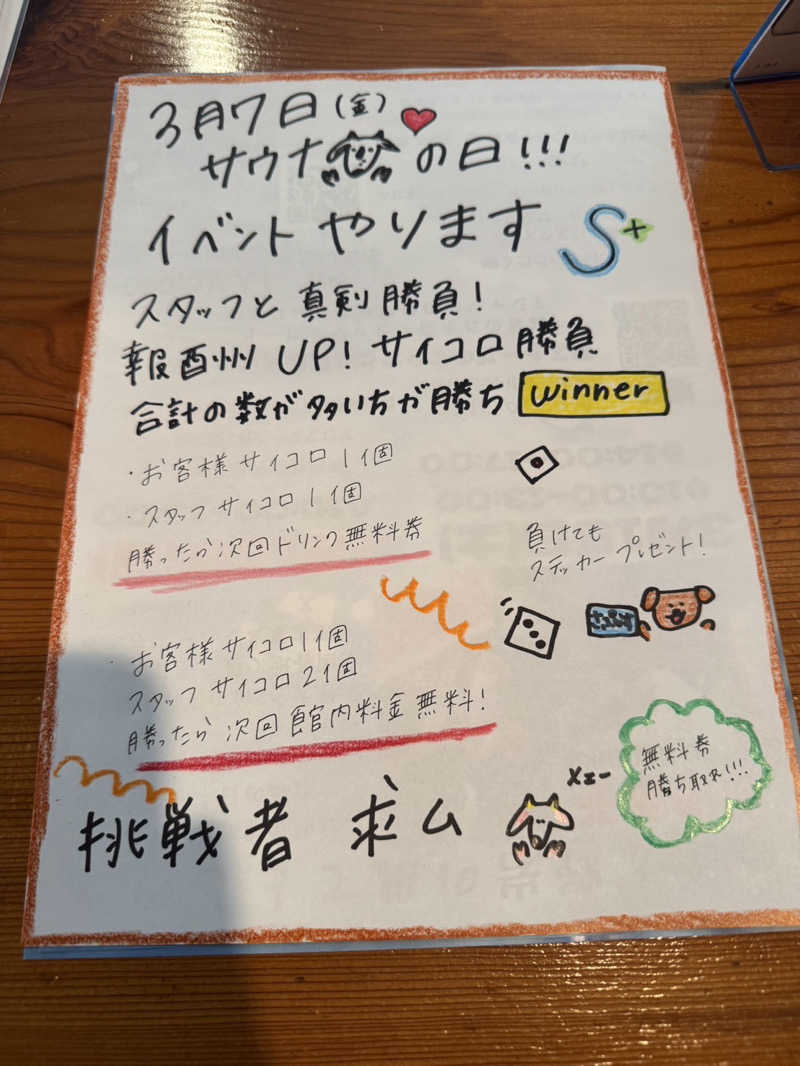 3月7日(金)
サウナの日!!!
イベントやります S+
スタッフと 真剣勝負!
報酬州 UP! サイコロ勝負
合計の数が多いちが勝ち winner
・お客様サイコロ1個
・スタッフサイコロ1個
勝ったら次回ドリンク無料券
負けても
ステッカープレゼント!
・お客様サイコロ1個
スタッフサイコロ2個
勝ったら次回館内料金無料!
無料券
勝ち取れ!!!
メェー
挑戦者 求ム